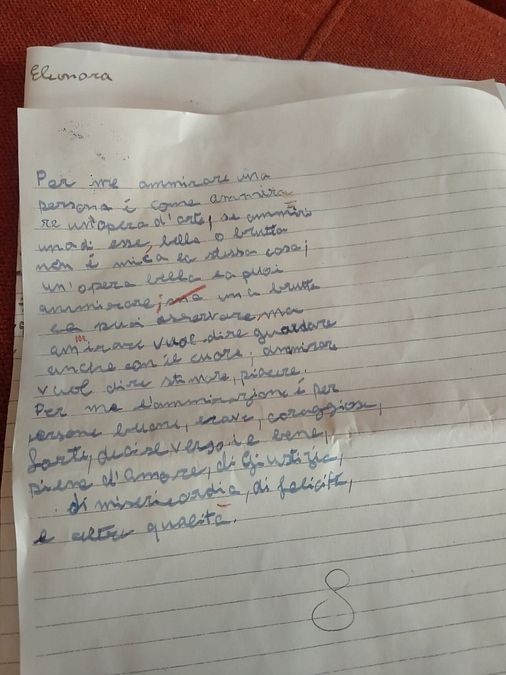 Eleonora
Per me ammirare una
persona é come ammira
re un'opera d'arte, se ammiri
una di esse, bella o brutta
non é mica la stessa cosa;
un'opera bella la puoi
ammirare; ma una brutta
la puoi osservare, ma
ammirare vuol dire guardare
anche con il cuore, ammirare
vuol dire stimare, piacere.
Per me l'ammirazione é per
persone buone, brave, coraggiose,
forti, decise verso il bene,
piene d'Amore, di Giustizia,
di misericordia, di felicità,
e altre qualità.
8